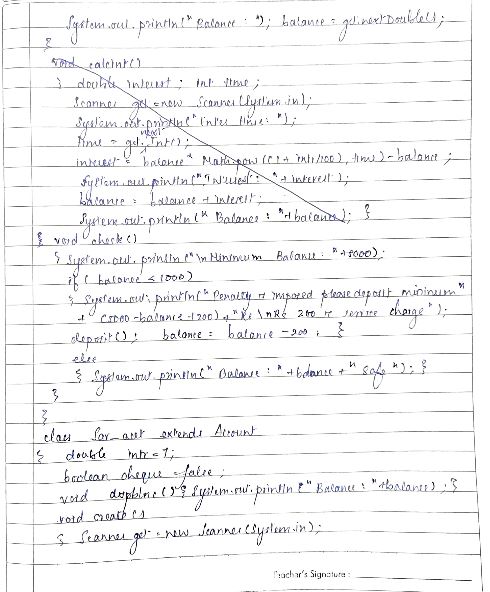 System.out.println(" Balance : "); balance = get.nextDouble();
}
void calcInt()
{ double interest ; int time ;
Scanner get = new Scanner(System.in);
System.out.println(" Enter time: ");
time = get.nextInt();
interest = balance * Math.pow((1 + intr/100), time) - balance ;
System.out.println(" Interest : " + interest);
balance = balance + interest;
System.out.println(" Balance : " + balance); }
void check()
{ System.out.println("\n Minimum Balance : " + 5000);
if( balance < 1000)
{ System.out.println(" Penalty is imposed please deposit minimum "
+ (5000 - balance - 200) + " Rs \nRs 200 is service charge ");
deposit() ; balance = balance - 200 ; }
else
{ System.out.println(" Balance : " + balance + " Safe "); }
}
}
class Sav_acct extends Account
{ double intr = 7;
boolean cheque = false ;
void () { System.out.println (" Balance : " + balance) ; }
void create()
{ Scanner get = new Scanner(System.in);
Teacher's Signature :